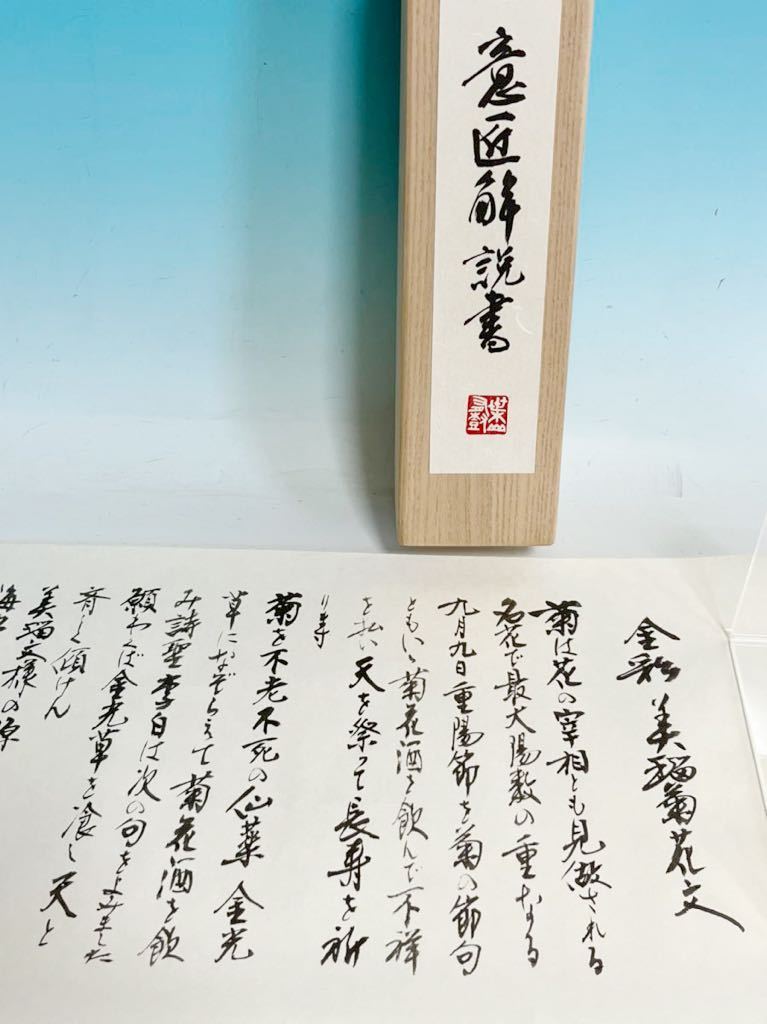 意匠解説書
金彩 美瑙菊花文
菊は花の宰相とも見做される
名花で最大陽数の重なる
九月九日重陽節を菊の節句
ともいい菊花酒を飲んで不祥
を払い天を祭って長寿を祈
ります
菊を不老不死の仙薬 金光
草になぞらえて菊花酒を飲
み詩聖李白は次の句をよみました
願わくば金光草を飡し天と
斉しく傾けん
美瑙文様の源